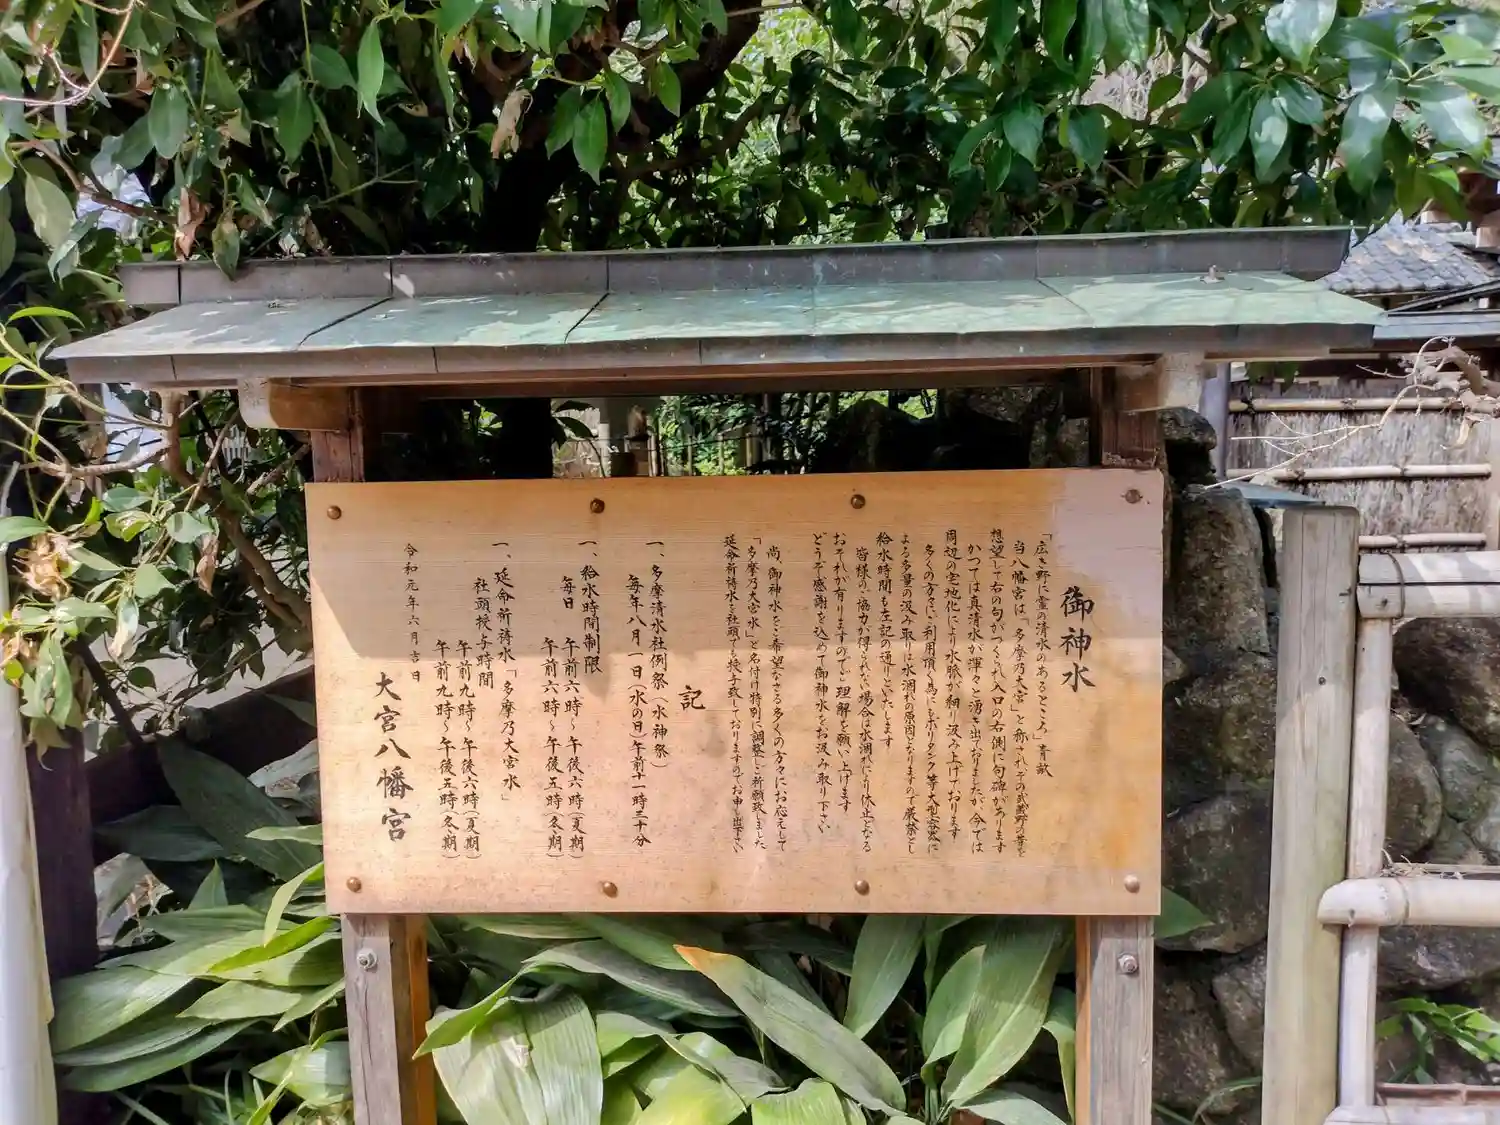 御神水
「広き野に霊の清水のあるところ」青畝
当八幡宮は、「多摩乃大宮」と称されその武蔵野の葦を
想望して右の句がつくられ入口の右側に句碑があります
かつては真清水が渾々と湧き出ておりましたが、今では
周辺の宅地化により水脈が細り汲み上げております
多くの方々にご利用頂く為にもポリタンク等大型容器に
よる多量の汲み取りは水涸れの原因となりますので厳禁とし
給水時間も左記の通りといたします
皆様のご協力が得られない場合は水涸れにより休止となる
おそれが有りますのでご理解を願い上げます
どうぞ感謝を込めて御神水をお汲み取り下さい
尚、御神水をご希望なさる多くの方々にお応えして
「多摩乃大宮水」と名付け特別に調整しご祈願致しました
延命祈祷水を社頭でお授与致しておりますのでお申し出下さい
記
一、多摩清水社例祭(水神祭)
毎年八月一日(水の日)午前十一時三十分
一、給水時間制限
毎日 午前六時~午後六時(夏期)
午前六時~午後五時(冬期)
一、延命祈祷水「多摩乃大宮水」
社頭授与時間
午前九時~午後六時(夏期)
午前九時~午後五時(冬期)
令和元年六月吉日
大宮八幡宮